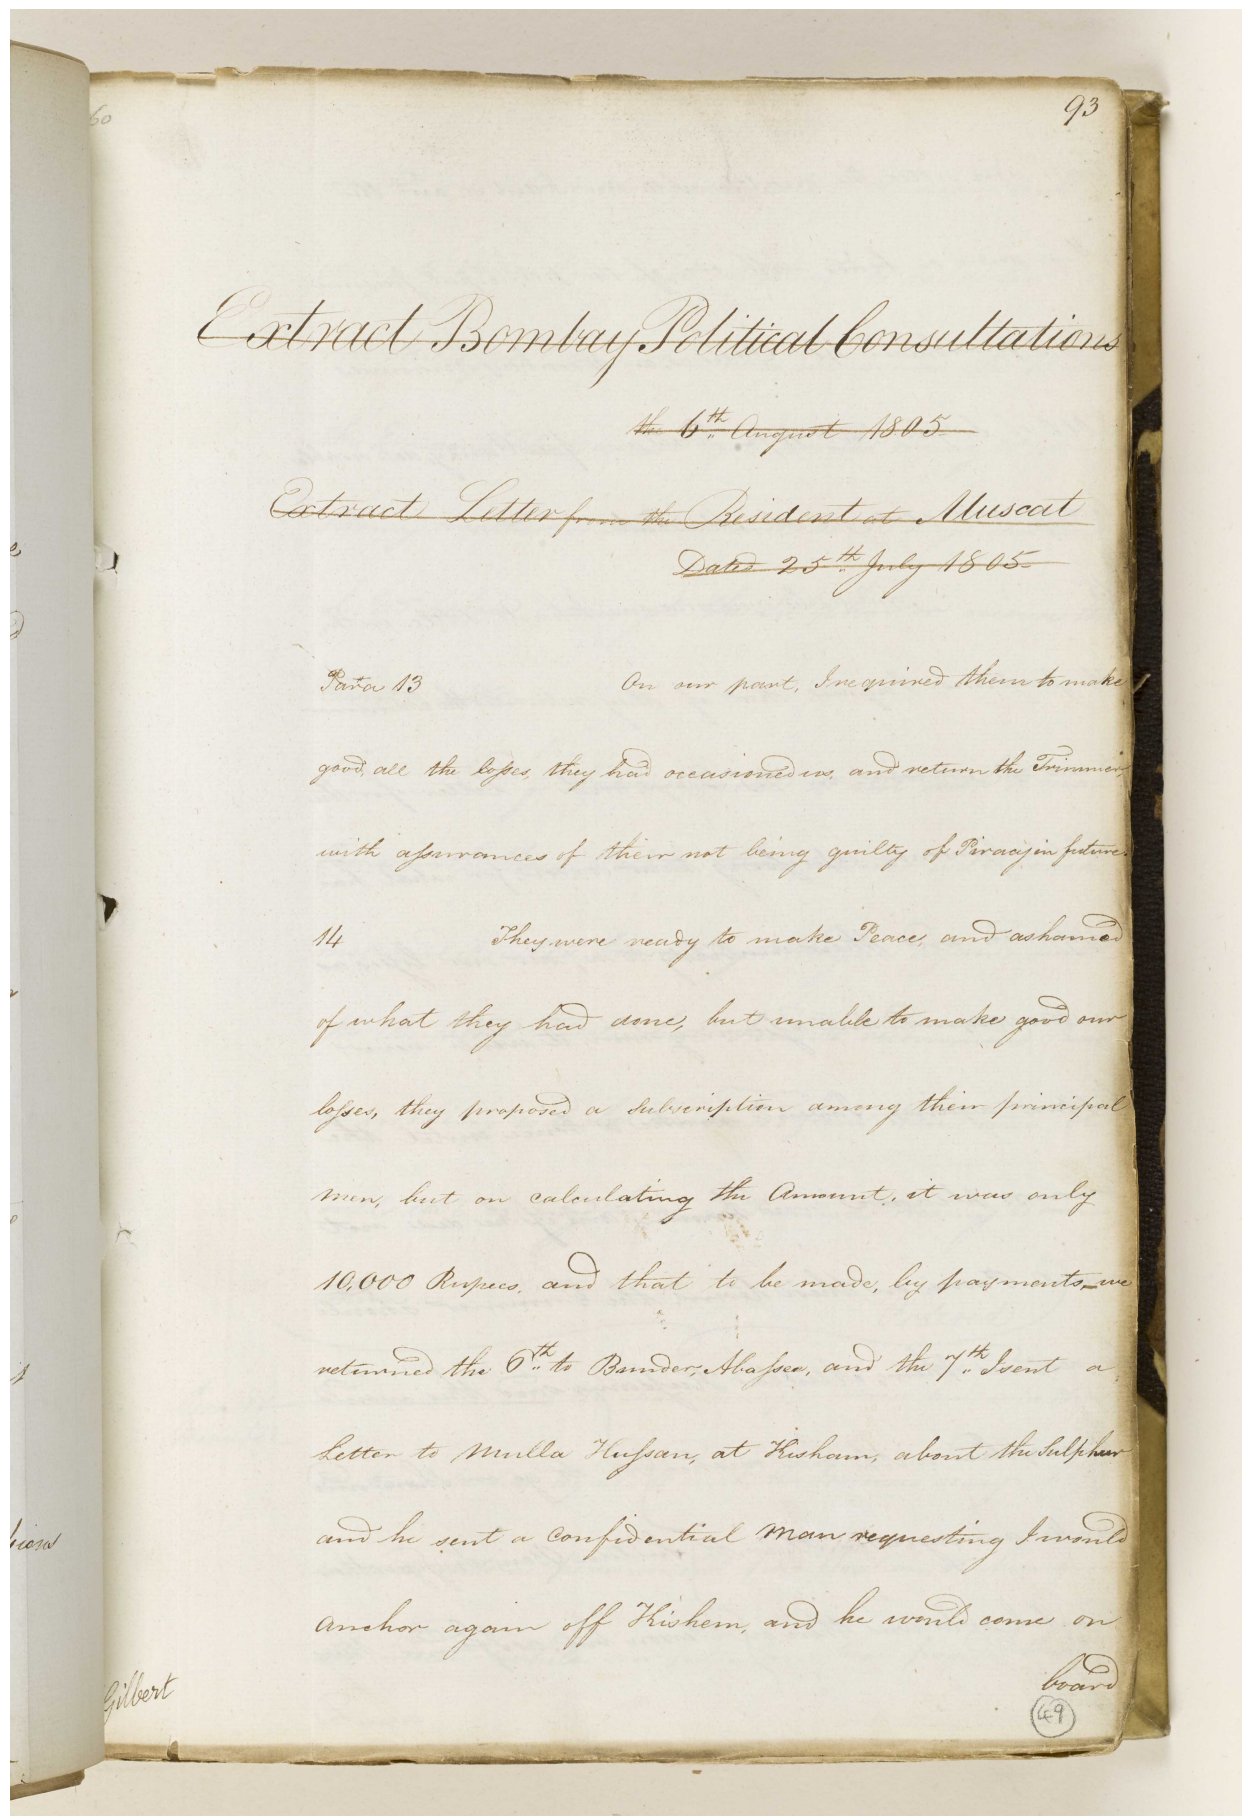 60
93
Extract Bombay Political Consultations
the 6th August 1805
Extract Letter from the Resident at Muscat
Dated 25th July 1805
Para 13 On our part, I required them to make
good, all the losses, they had occasioned us, and return the Trimmer,
with assurances of their not being guilty of Piracy in future.
14 They were ready to make Peace, and ashamed
of what they had done, but unable to make good our
losses, they proposed a subscription among their principal
men, but on calculating the Amount, it was only
10,000 Rupees, and that to be made, by payments, we
returned the 6th to Bunder, Abassee, and the 7th I sent a
Letter to Mulla Hussan, at Kisham, about the Sulphur
and he sent a confidential man requesting I would
anchor again off Kishem, and he would come on
board
Gilbert
49